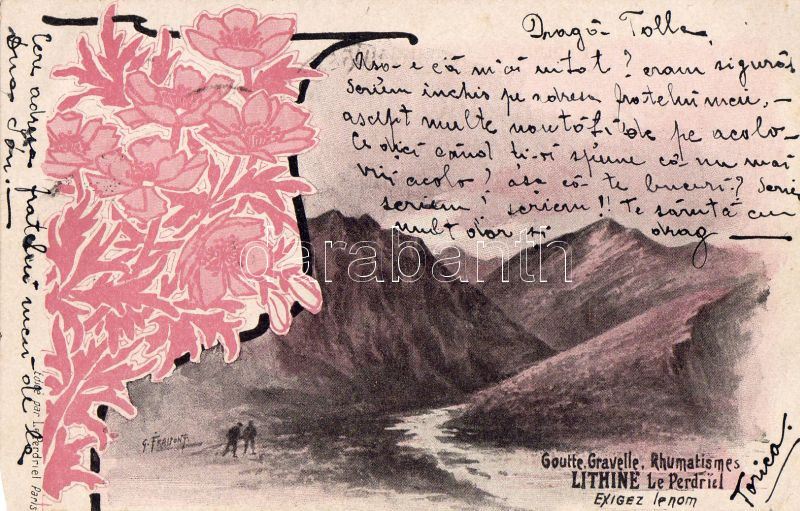 Dragă Tolla,
Aso-e că m'ai uitat? eram sigură
scriem închis pe adresa fratelui meu, -
aștept multe noutăți de pe acolo-
Ce zici când ti-oi spune că nu mai
viu acolo? asa că te bucuri? Scrie
scriem! scriem!! Te sărută cu
mult dor și drag
Torica.
Cere adresa fratelui meu de la
Ion!
G. FRAIPONT
Goutte, Gravelle, Rhumatismes
LITHINÉ Le Perdriel
EXIGEZ le nom
Édité par Le Perdriel Paris
darabanth